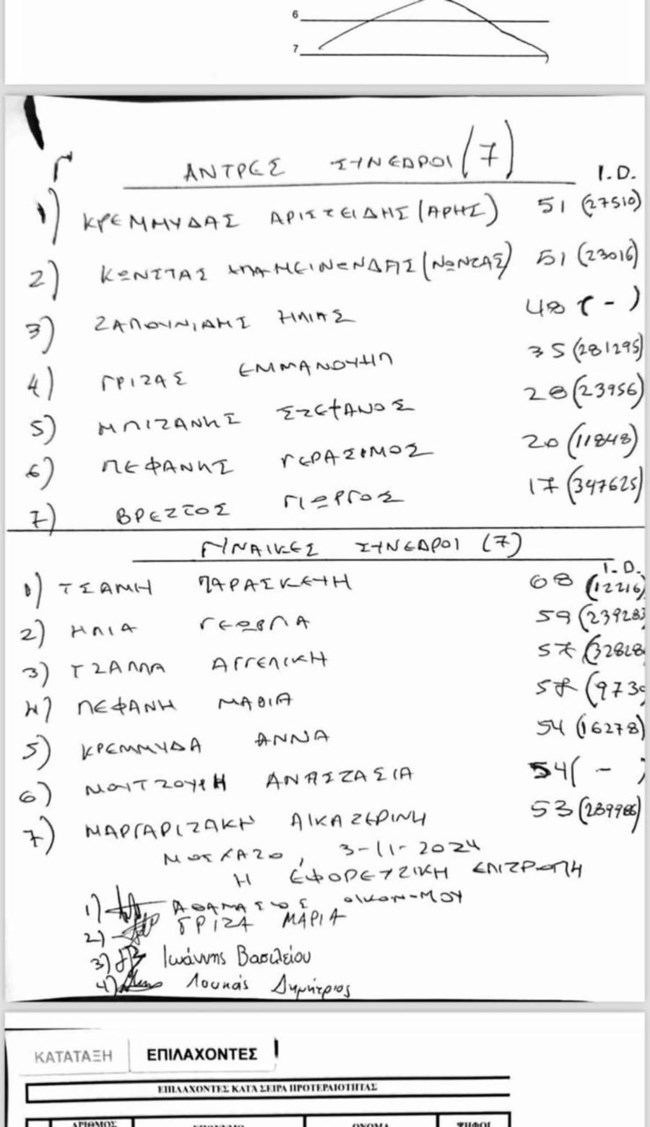 6
7
ΑΝΤΡΕΣ ΣΥΝΕΔΡΟΙ (7)
I.D.
1) ΚΡΕΜΜΥΔΑΣ ΑΡΙΣΤΕΙΔΗΣ (ΑΡΗΣ) 51 (27510)
2) ΚΩΝΣΤΑΣ ΕΠΑΜΕΙΝΩΝΔΑΣ (ΝΩΝΤΑΣ) 51 (23016)
3) ΖΑΠΟΥΝΙΔΗΣ ΗΛΙΑΣ 48 ( - )
4) ΓΡΙΖΑΣ ΕΜΜΑΝΟΥΗΛ 35 (281295)
5) ΜΠΙΖΑΝΗΣ ΣΤΕΦΑΝΟΣ 28 (23956)
6) ΠΕΦΑΝΗΣ ΓΕΡΑΣΙΜΟΣ 20 (11848)
7) ΒΡΕΤΤΟΣ ΓΙΩΡΓΟΣ 17 (347625)
ΓΥΝΑΙΚΕΣ ΣΥΝΕΔΡΟΙ (7)
I.D.
1) ΤΣΑΜΗ ΠΑΡΑΣΚΕΥΗ 68 (12216)
2) ΗΛΙΑ ΓΕΩΡΓΙΑ 59 (23928
3) ΤΖΑΛΛΑ ΑΓΓΕΛΙΚΗ 57 (32828
4) ΠΕΦΑΝΗ ΜΑΘΙΑ (973
5) ΚΡΕΜΜΥΔΑ ΑΝΝΑ 54 (16278)
6) ΜΟΥΤΖΟΥΡΗ ΑΝΑΣΤΑΣΙΑ 54 ( - )
7) ΜΑΡΓΑΡΙΤΑΚΗ ΑΙΚΑΤΕΡΙΝΗ 53 (239986)
ΜΟΣΧΑΤΟ, 3-11-2024
Η ΕΦΟΡΕΥΤΙΚΗ ΕΠΙΤΡΟΠΗ
1) ΑΘΑΝΑΣΙΟΣ ΟΙΚΟΝΟΜΟΥ
2) ΓΡΙΖΑ ΜΑΡΙΑ
3) Ιωάννης Βασιλείου
4) Λουκάς Δημήτριος
ΚΑΤΑΤΑΞΗ ΕΠΙΛΑΧΟΝΤΕΣ
ΕΠΙΛΑΧΟΝΤΕΣ ΚΑΤΑ ΣΕΙΡΑ ΠΡΟΤΕΡΑΙΟΤΗΤΑΣ
ΑΡΙΘΜΟΣ ΕΠΩΝΥΜΟ ΟΝΟΜΑ ΨΗΦΟΙ